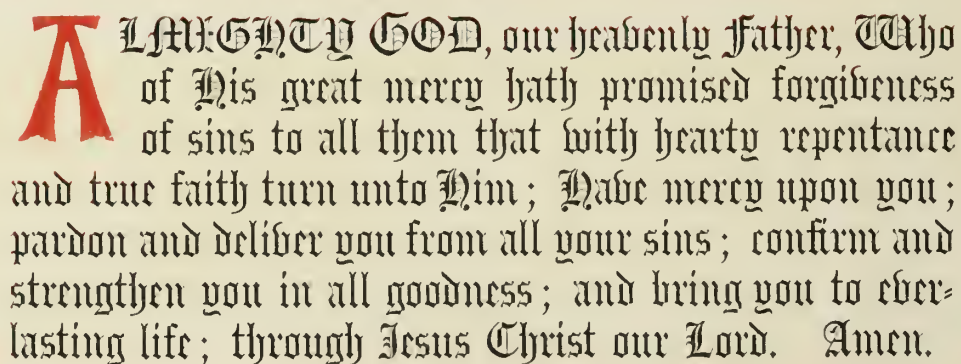 ALMIGHTY GOD, our heavenly Father, Who
of His great mercy hath promised forgiveness
of sins to all them that with hearty repentance
and true faith turn unto Him; Have mercy upon you;
pardon and deliver you from all your sins; confirm and
strengthen you in all goodness; and bring you to ever-
lasting life; through Jesus Christ our Lord. Amen.